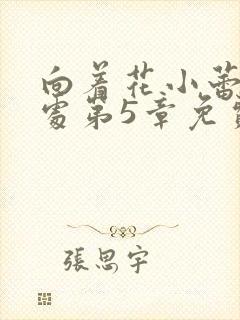 向着花小蕾
处第5章免费
张思宇